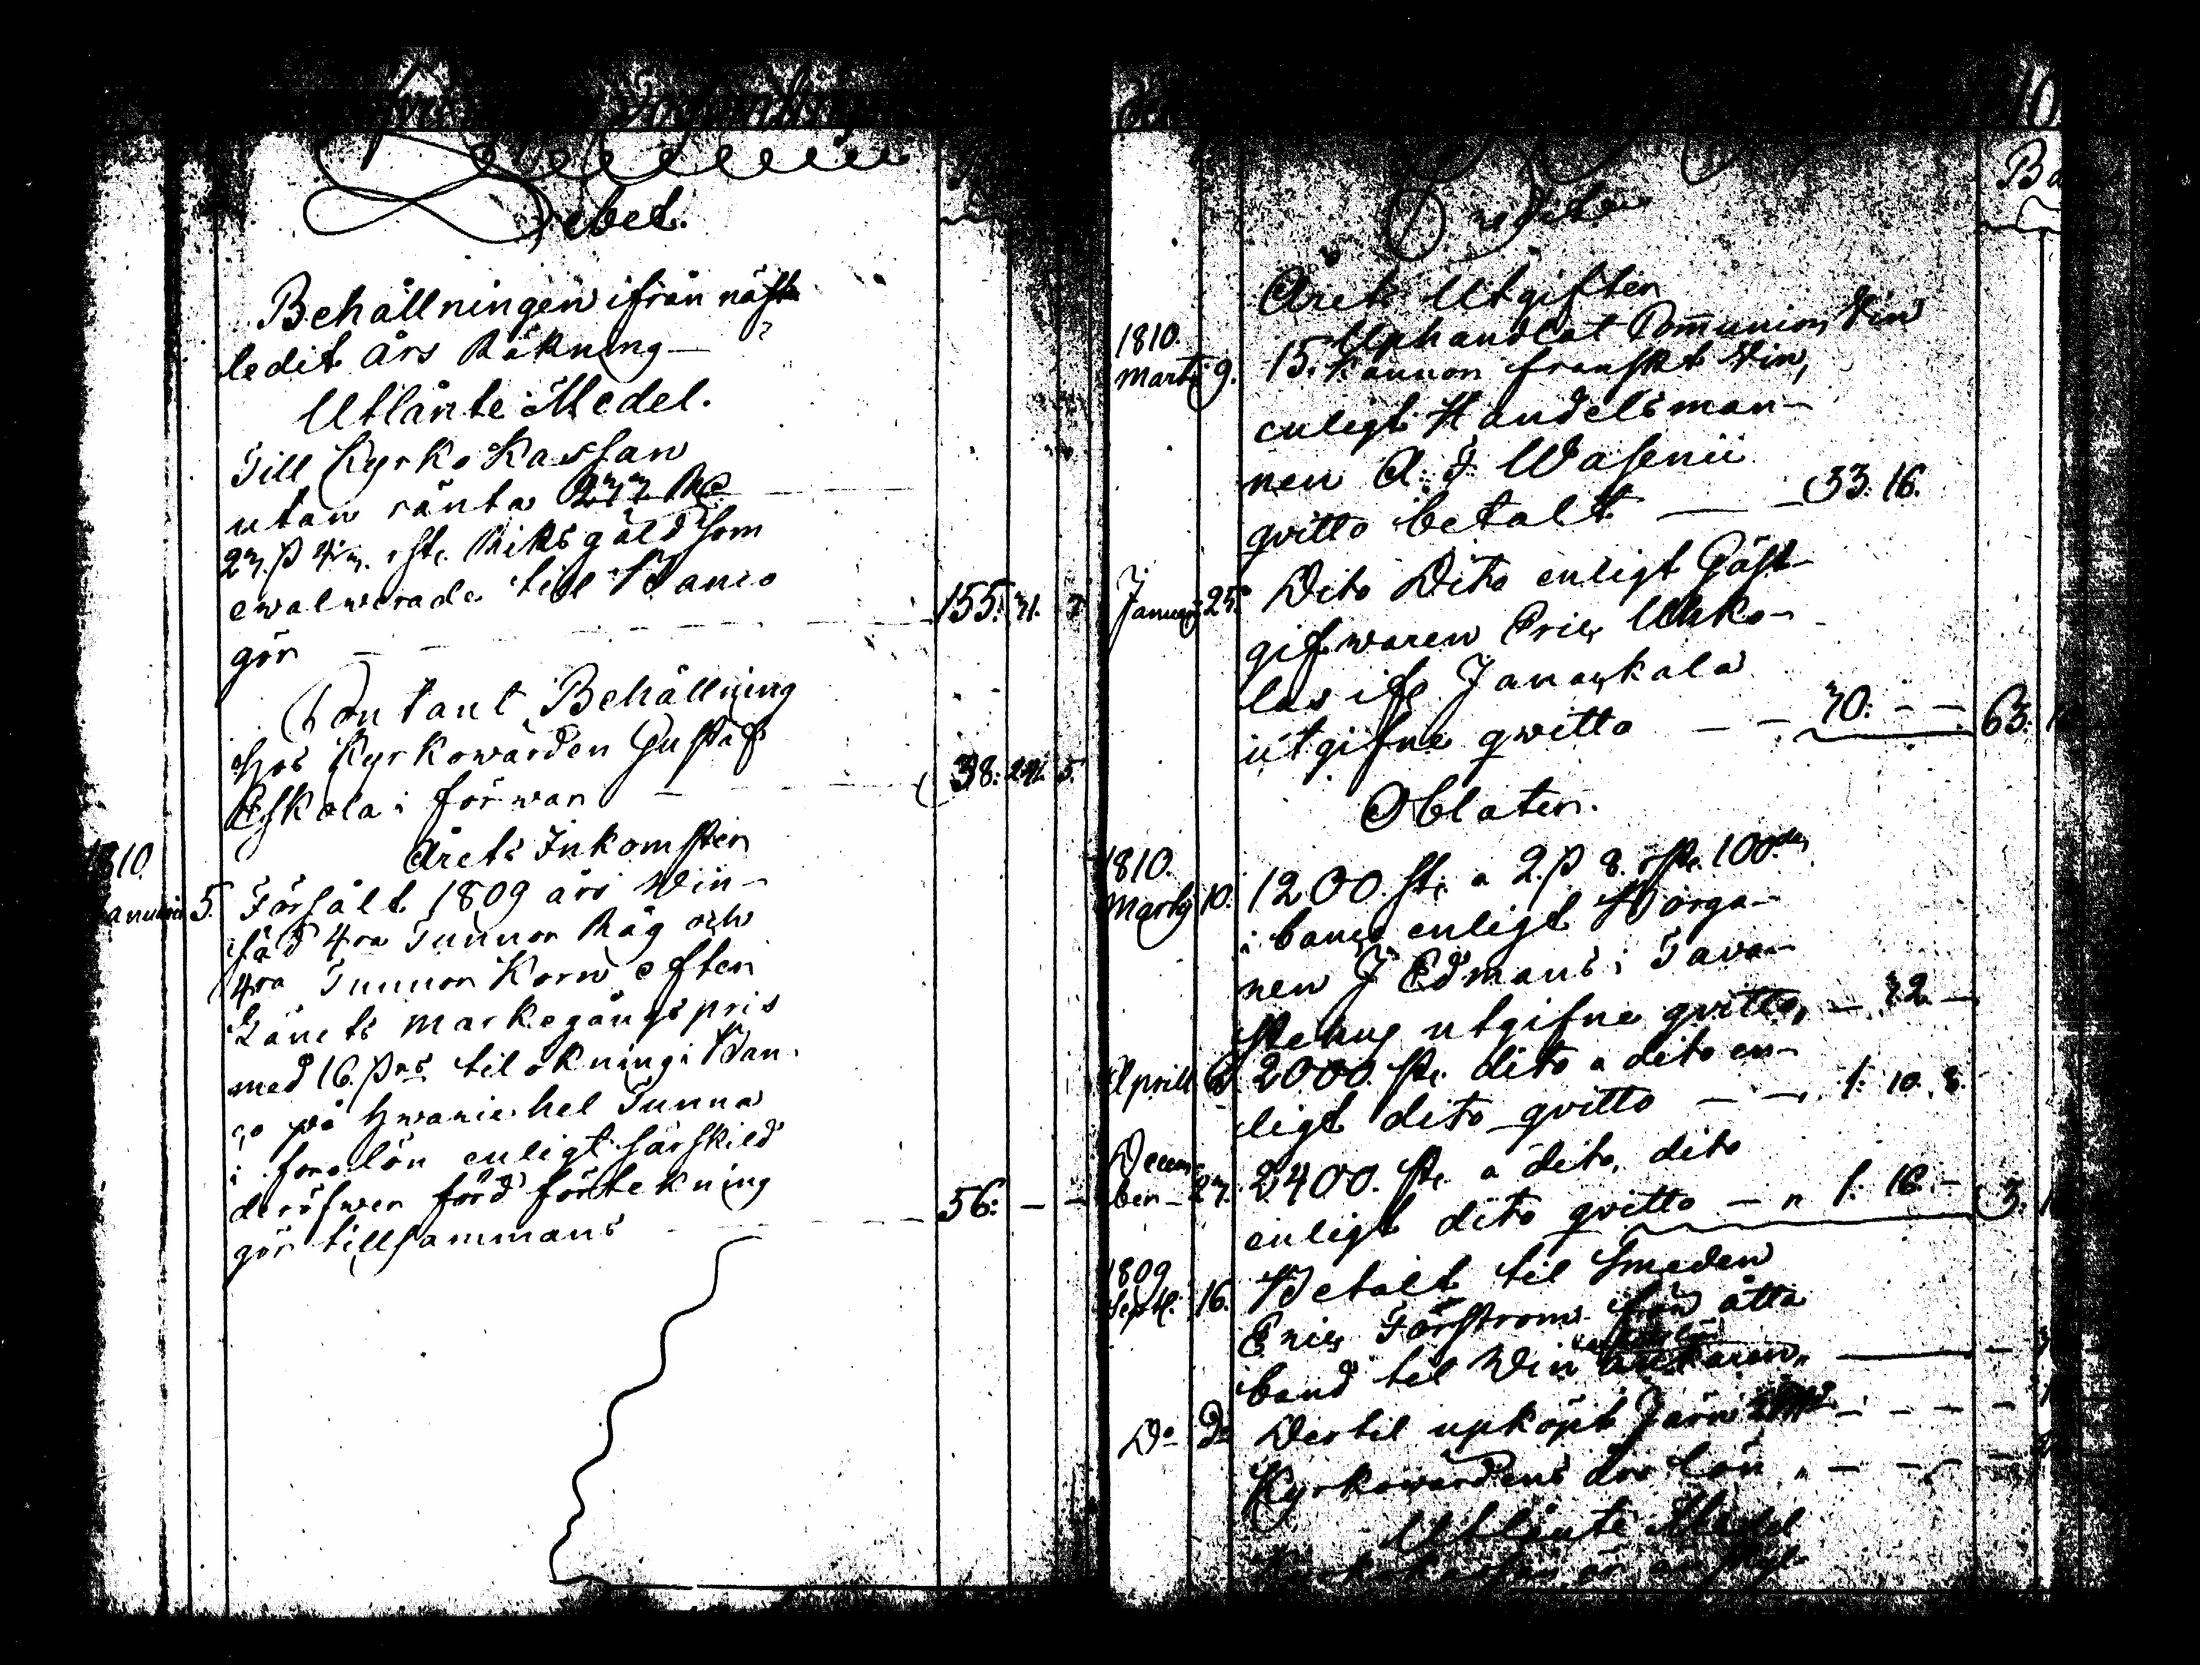 Debet.
Behållningen ifrån näst
ledit års Räkning
Utlånte Medel.
Till Kyrko Kassan
utan ränta
Riksgäld som
ewalwerade till Banco
gör 155:
Contant Behållning
Hos Kyrkowärden Gustaf
Eskola i förwar 38: 24. 5.
Årets Inkomster
1810
Januarii 5. Försålt 1809 års Win-
säd 4ra Tunnor Råg och
4ra Tunnor Korn efter
Länets Markegångs pris
med 16. tilökning i Ban-
co på hwarie hel Tunna
i forlön enligt särskild
deröfwer förd förtekning
gör tillsammans 56: - -
10
Credit
Ba
Årets Utgifter
1810. Uphandlat Communion Vin
Marty 9. 15. Kannor franskt Vin,
enligt Handelsman-
nen A: J: Wasenii
qvitto betalt 33: 16.
Januarii 25. Dito Dito enligt Gäst-
gifwaren Eric Uhko-
las ifr Janackala
utgifne qwitto - - 30: - - 63:
Oblater.
1810.
Marty 10. 1200. st. a 2. β 8. rst. 100
i banco enligt Borga-
nen J Edmans i Tava-
stehus utgifne qvitto, - 32 -
Aprill 2000. st. dito a dito en-
ligt dito qvitto - - 1: 10. 8.
Decem-
ber 27. 2400. st. a dito, dito
enligt dito qvitto - 1: 16. - 3:
1809
Septb. 16. Betalt til Smeden
Eric Forsstrom för åtta
band til Vin
Do Do Dertil upköpt Järn
Kyrkowärdens års lön
Utlånte Medel